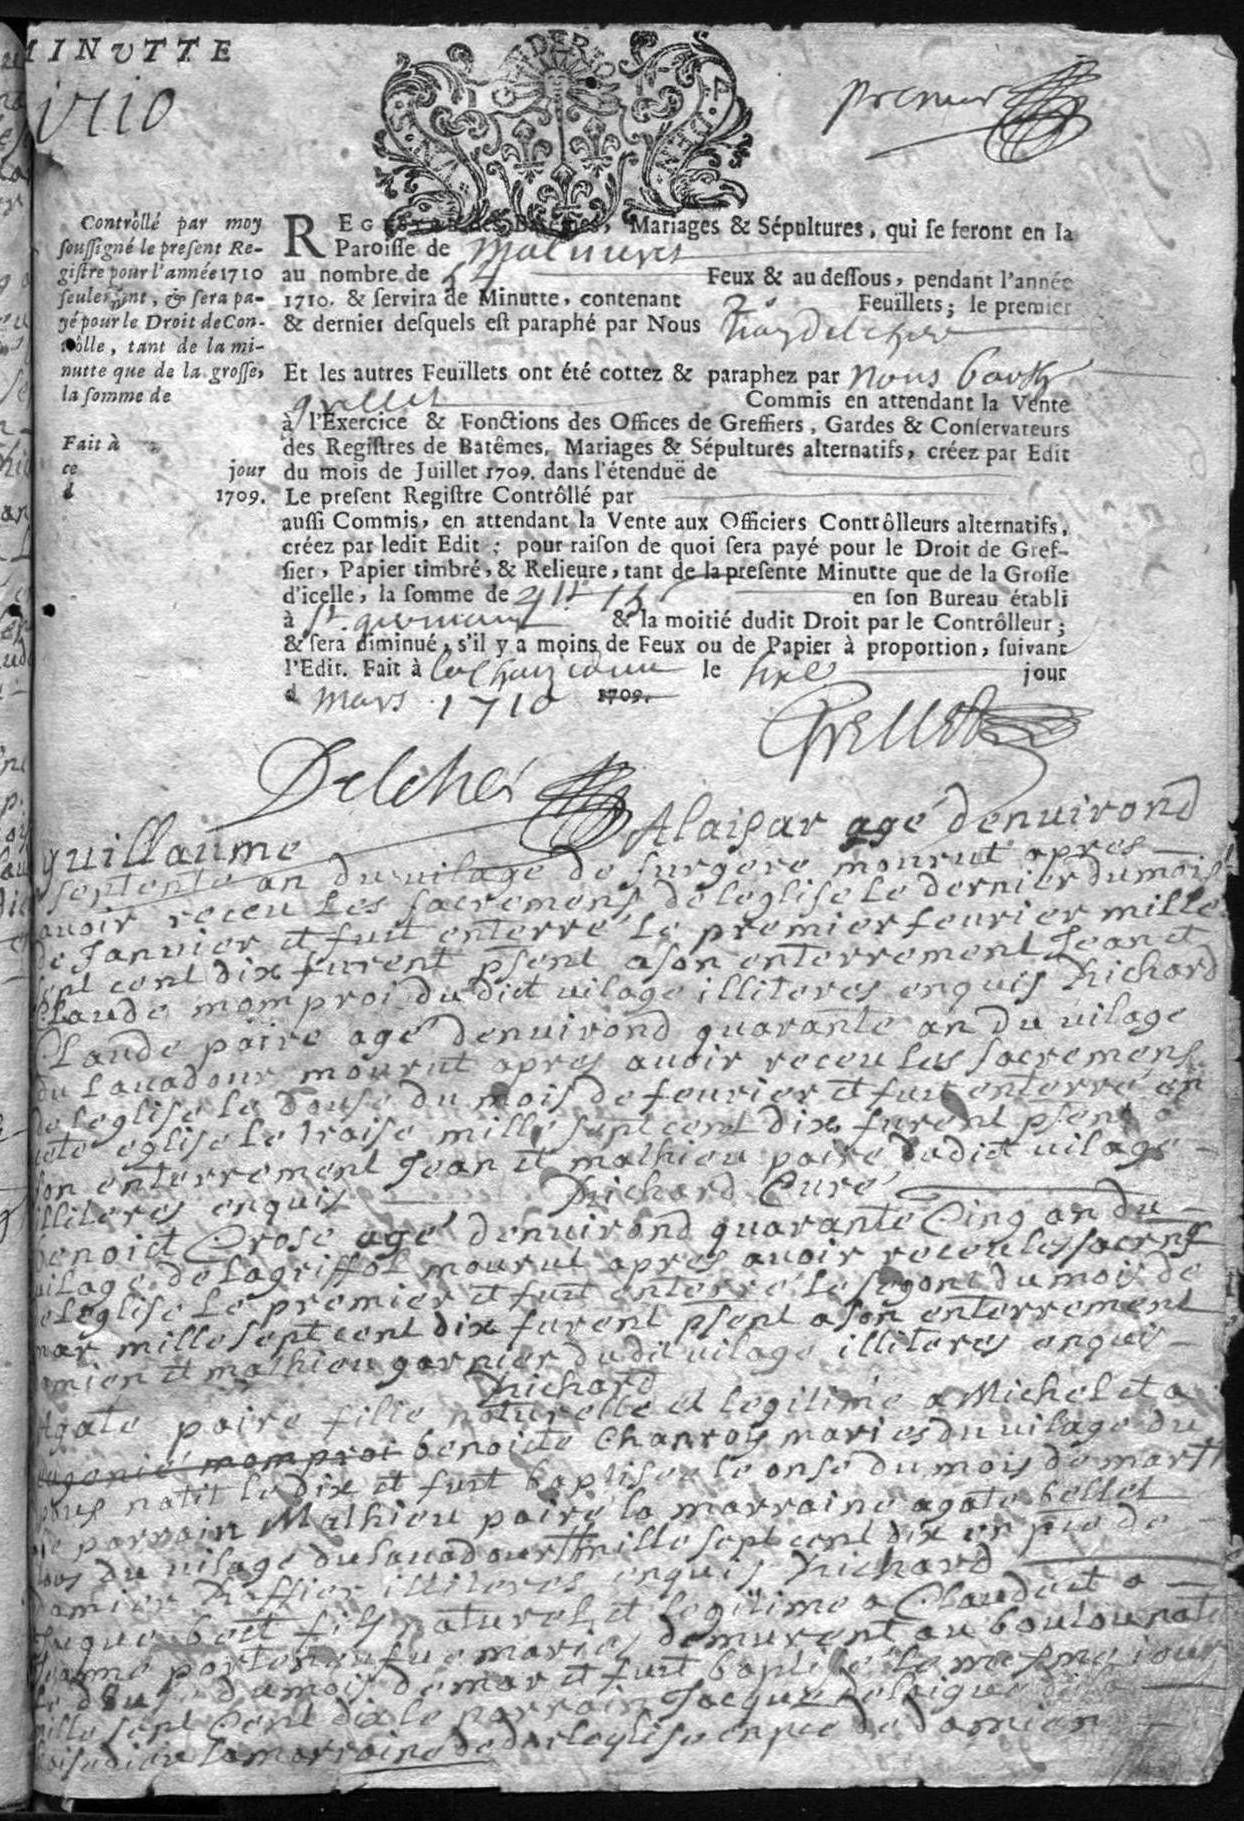 MINUTTE
1710
GENDERIO
premier
Contrôllé par moy
soussigné le present Re-
gistre pour l'année 1710
seulement, & sera pa-
yé pour le Droit de Con-
trôlle, tant de la mi-
nutte que de la grosse,
la somme de
Fait à
ce jour
d 1709.
REGISTRE des Batêmes, Mariages & Sépultures, qui se feront en la
Paroisse de
au nombre de 54 Feux & au dessous, pendant l'année
1710. & servira de Minutte, contenant Feuillets; le premier
& dernier desquels est paraphé par Nous
Et les autres Feuillets ont été cottez & paraphez par Nous
grellet Commis en attendant la Vente
à l'Exercice & Fonctions des Offices de Greffiers, Gardes & Conservateurs
des Registres de Batêmes, Mariages & Sépultures alternatifs, créez par Edit
du mois de Juillet 1709. dans l'étenduë de
Le present Registre Contrôllé par
aussi Commis, en attendant la Vente aux Officiers Contrôlleurs alternatifs,
créez par ledit Edit; pour raison de quoi sera payé pour le Droit de Gref-
fier, Papier timbré, & Relieure, tant de la presente Minutte que de la Grosse
d'icelle, la somme de en son Bureau établi
à St. germain & la moitié dudit Droit par le Contrôlleur;
& sera diminué, s'il y a moins de Feux ou de Papier à proportion, suivant
l'Edit. Fait à le jour
d mars 1710 1709.
Grellet
Delchés
guillaume Alaisar agé denuirond
septente an du uilage de surgere mourut apres
auoir receu les sacremens de leglise le dernier du mois
de Januier et fut enterré le premier feurier mille
sept cent dix furent psent a son enterrement Jean et
Claude momproi du dict uilage illiteres enquis Richard
Claude paire agé denuirond quarante an du uilage
du Lauadour mourut apres auoir receu les sacremens
de leglise le douse du mois de feurier et fut enterré en
cete eglise le traise mille sept cent dix furent psent a
son enterrement Jean et mathieu paire dudict uilage
illiteres enquis Richard Curé
benoict Crose agé denuirond quarante Cinq an du
uilage de lagriffol mourut apres auoir receu les sacrms
de leglise le premier et fut enterré le segont du mois de
mar mille sept cent dix furent psent a son enterrement
damien et mathieu garnier dudit uilage illiteres enquis
Richard
Agate paire fille naturelle et legitime a Michel et a
eugenie momproi benoicte Chanrois maries du uilage du
natit le dix et fut baptisee le onse du mois de mar
le parrain Mathieu paire la marraine agate bellet
tous du uilage du lauadour mille sept cent dix en pnce de
damien Ruffier illiteres enquis Richard
Jaque beit fils naturel et legitime a Claude et a
maries demurent au boulou natit
le douse du mois de mar et fut baptisé le mesme jour
mille sept Cent dix le parrain Jacque
la marraine de de leglise en pnce de damien